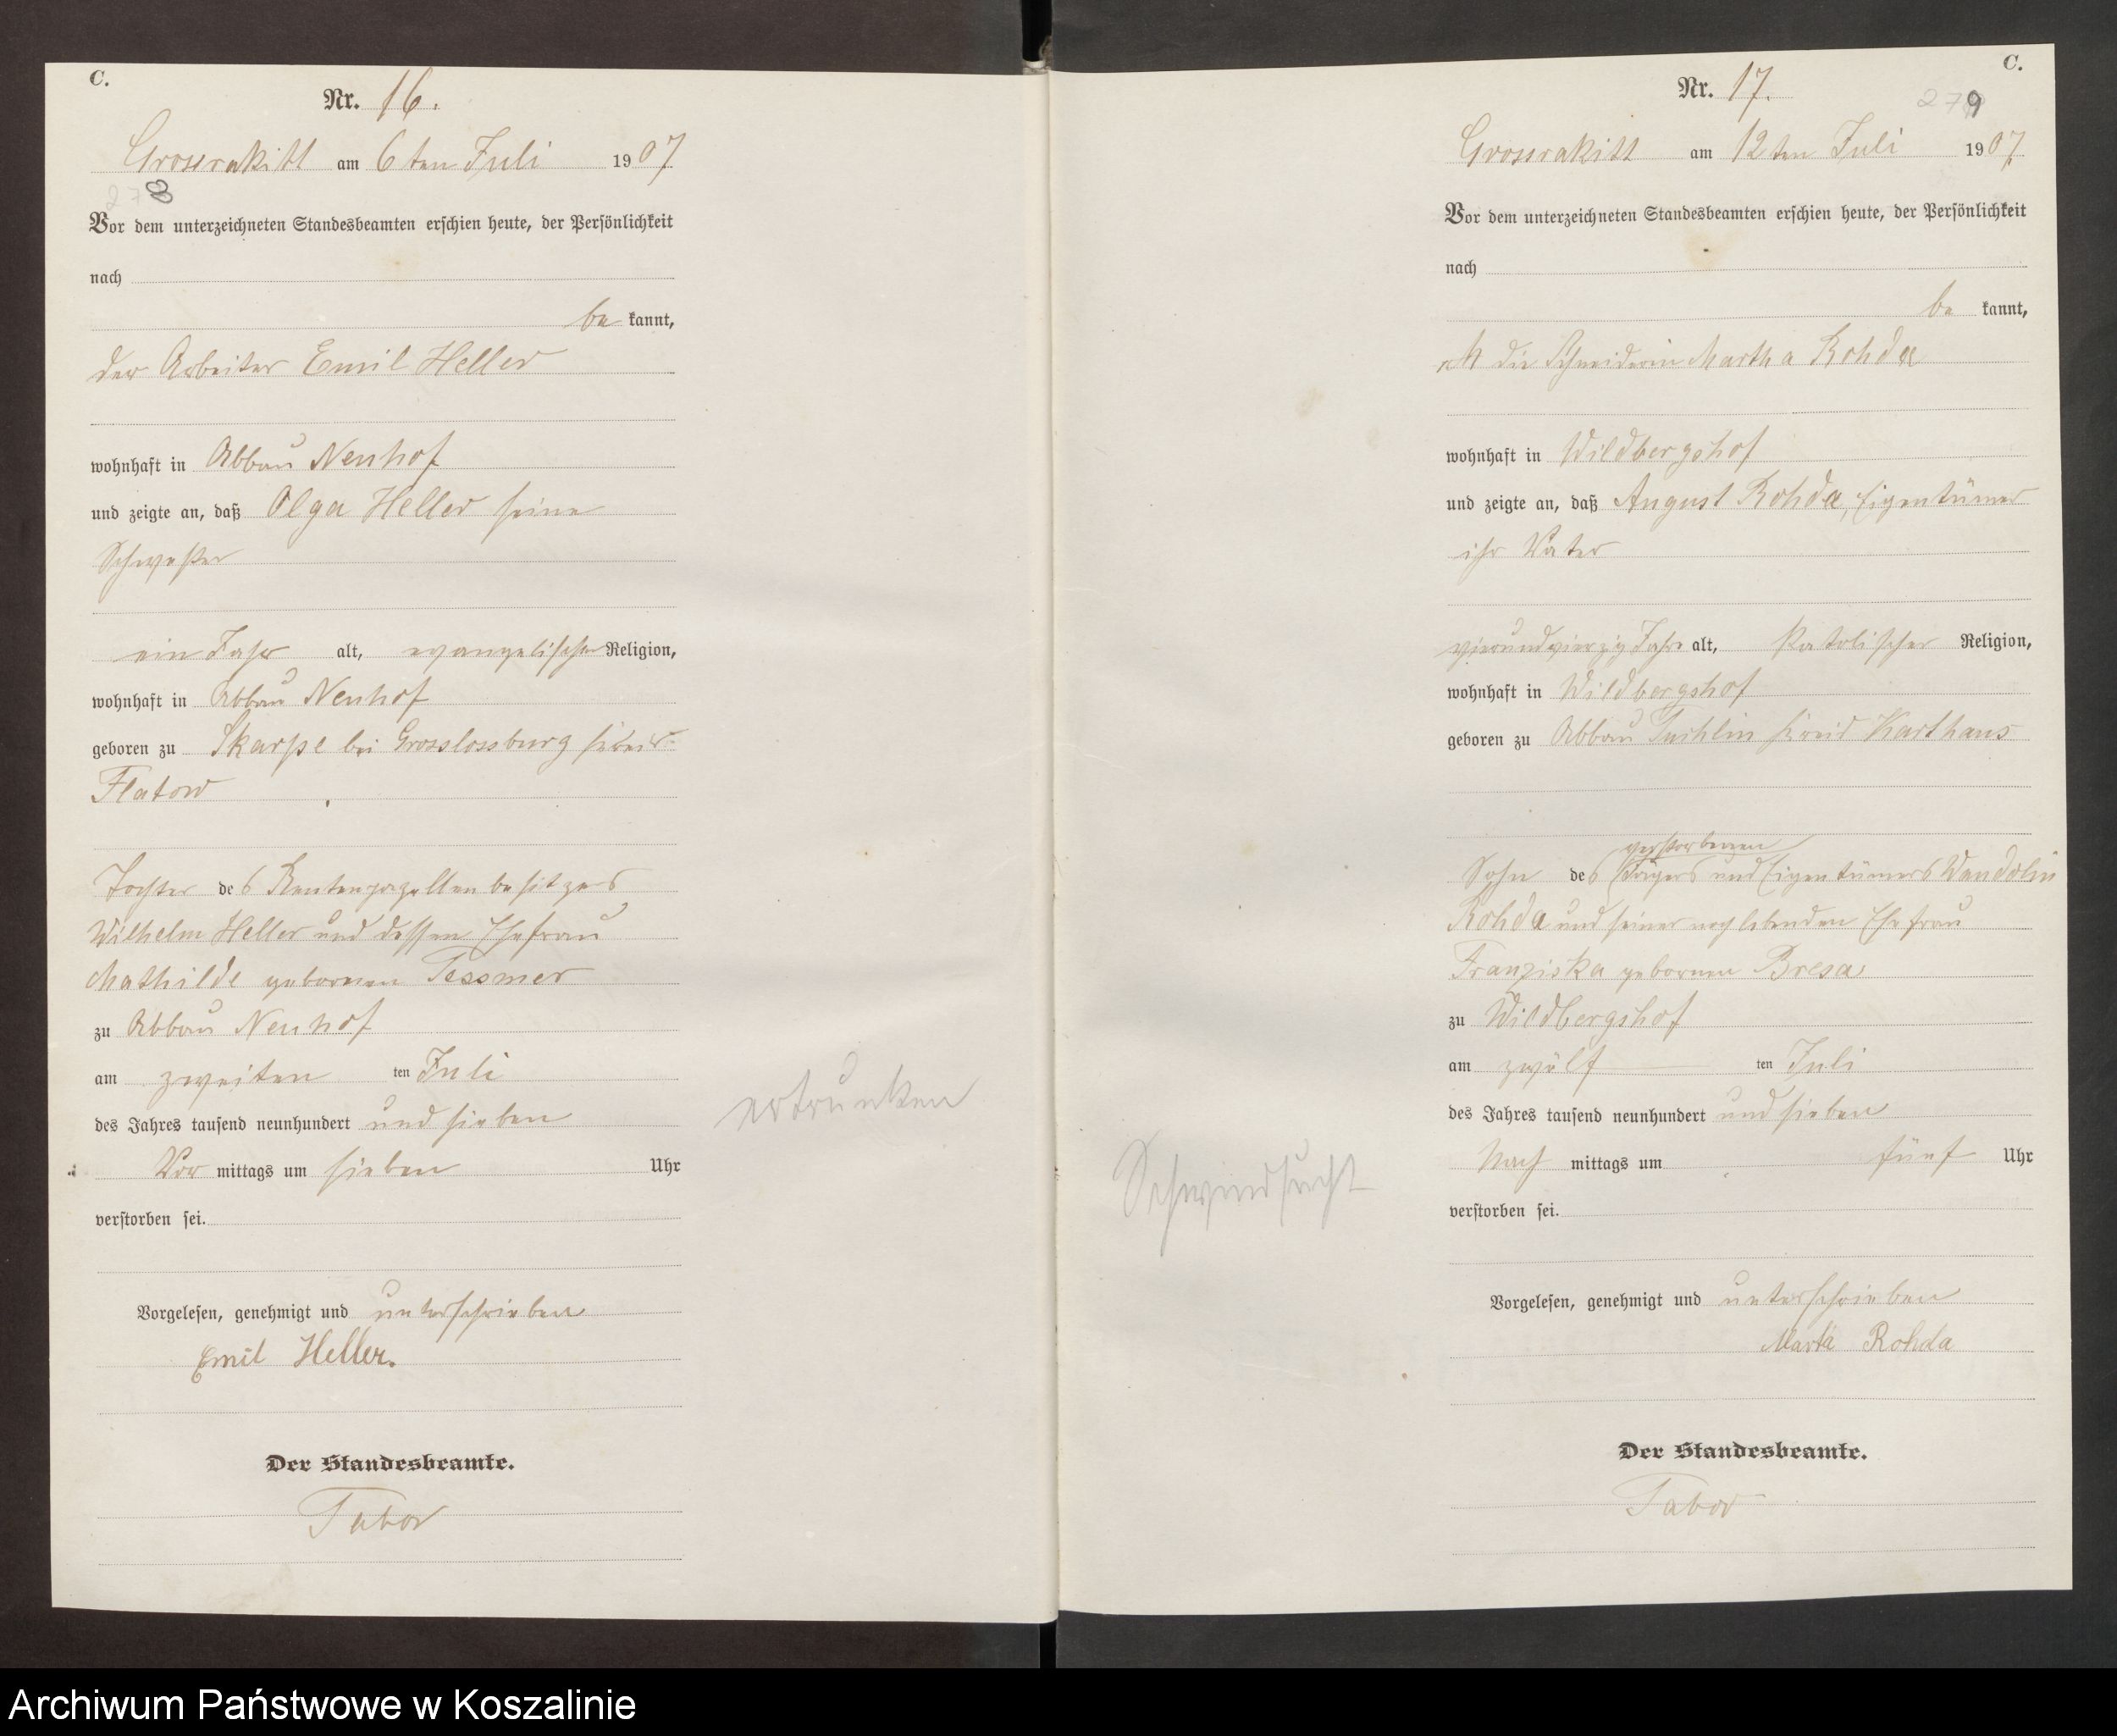 C.
Nr. 16.
Grossrakitt am 6ten Juli 1907
278
Vor dem unterzeichneten Standesbeamten erschien heute, der Persönlichkeit
nach
be kannt,
der Arbeiter Emil Heller
wohnhaft in Abbau Neuhof
und zeigte an, daß Olga Heller seine
Schwester
ein Jahr alt, evangelischer Religion,
wohnhaft in Abbau Neuhof
geboren zu Skarpe bei Grosslossburg Kreis
Flatow
Tochter des Rentenparzellenbesitzers
Wilhelm Heller und dessen Ehefrau
Mathilde geborenen Tessmer
zu Abbau Neuhof
am zweiten ten Juli
des Jahres tausend neunhundert und sieben
Vor mittags um sieben Uhr
verstorben sei.
ertrunken
Vorgelesen, genehmigt und unterschrieben
Emil Heller.
Der Standesbeamte.
Tabor
C.
Nr. 17.
279
Grossrakitt am 12ten Juli 1907
Vor dem unterzeichneten Standesbeamten erschien heute, der Persönlichkeit
nach
be kannt,
die Schneiderin Martha Rohda
wohnhaft in Wildbergshof
und zeigte an, daß August Rohda, Eigentümer
ihr Vater
vierundvierzig Jahre alt, katolischer Religion,
wohnhaft in Wildbergshof
geboren zu Abbau Tuchlin Kreis Karthaus
verstorbenen
Sohn des und Eigentümers Wendolin
Rohda und seiner noch lebenden Ehefrau
Franziska geborenen Bresa
zu Wildbergshof
am zwölf ten Juli
des Jahres tausend neunhundert und sieben
Nach mittags um fünf Uhr
verstorben sei.
Schwindsucht
Vorgelesen, genehmigt und unterschrieben
Marta Rohda
Der Standesbeamte.
Tabor
Archiwum Państwowe w Koszalinie